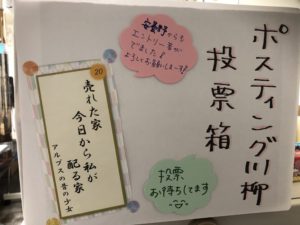 ポスティング川柳
投票箱
安曇野からも
エントリー者が
でました！
よろしくお願いしまーす！
20
売れた家
今日から私が
配る家
アルプスの昔の少女
投票
お待ちしてます